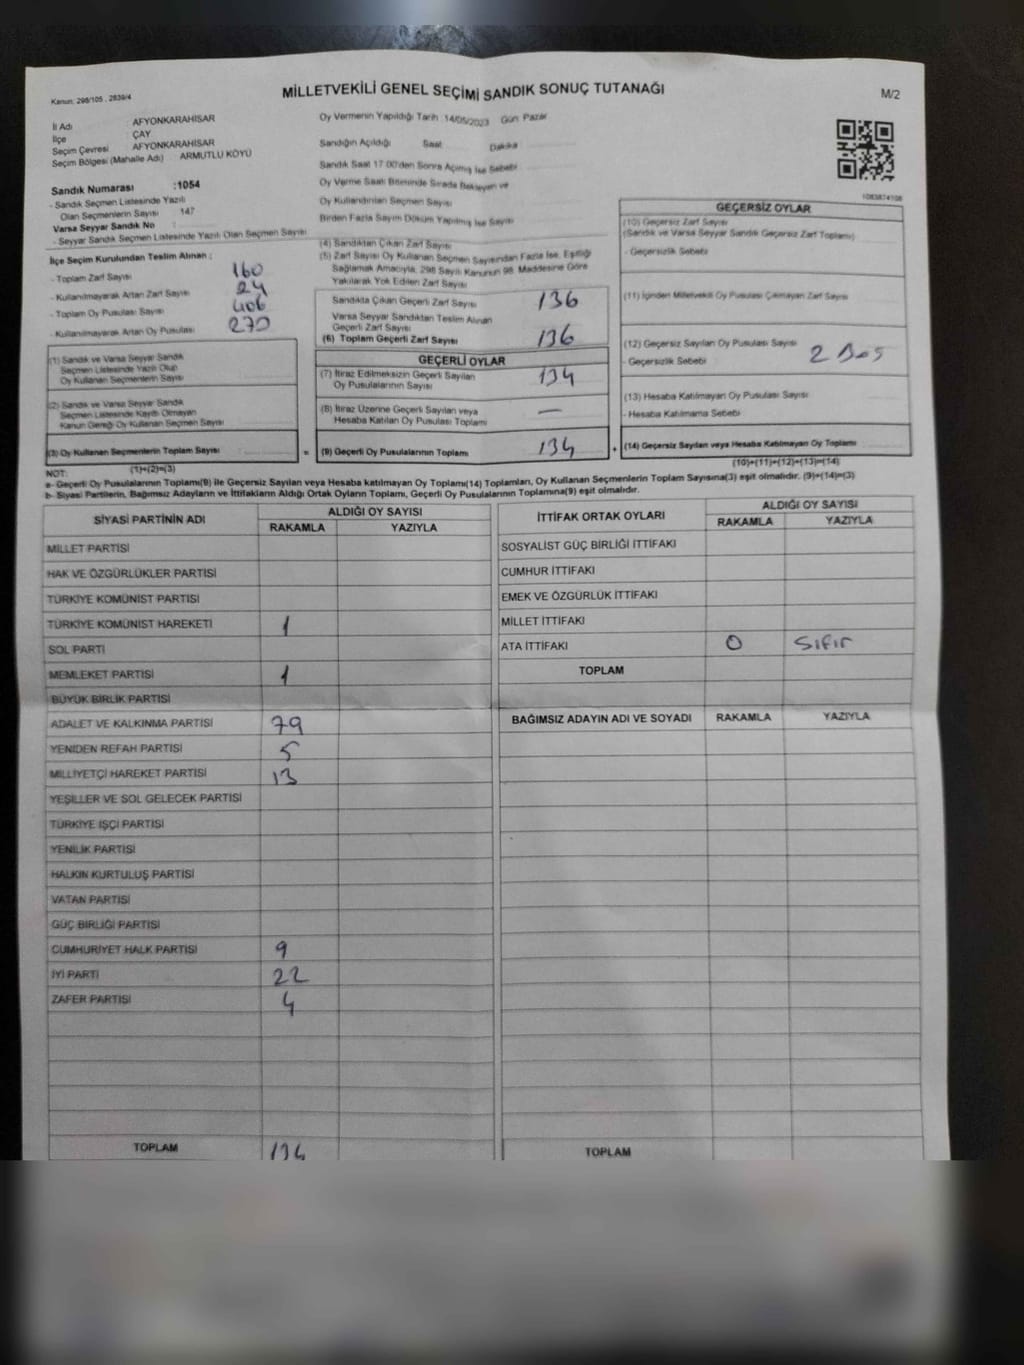 Kanun: 298/105 , 2839/4
MİLLETVEKİLİ GENEL SEÇİMİ SANDIK SONUÇ TUTANAĞI
M/2
İl Adı AFYONKARAHİSAR
İlçe ÇAY
Seçim Çevresi AFYONKARAHİSAR
Seçim Bölgesi (Mahalle Adı) ARMUTLU KÖYÜ
Sandık Numarası :1054
- Sandık Seçmen Listesinde Yazılı
Olan Seçmenlerin Sayısı 147
Varsa Seyyar Sandık No :
- Seyyar Sandık Seçmen Listesinde Yazılı Olan Seçmen Sayısı
İlçe Seçim Kurulundan Teslim Alınan :
- Toplam Zarf Sayısı 160
- Kullanılmayarak Artan Zarf Sayısı 24
- Toplam Oy Pusulası Sayısı 406
- Kullanılmayarak Artan Oy Pusulası 270
(1) Sandık ve Varsa Seyyar Sandık
Seçmen Listesinde Yazılı Olup
Oy Kullanan Seçmenlerin Sayısı
(2) Sandık ve Varsa Seyyar Sandık
Seçmen Listesinde Kayıtlı Olmayan
Kanun Gereği Oy Kullanan Seçmen Sayısı
(3) Oy Kullanan Seçmenlerin Toplam Sayısı
(1)+(2)=(3)
Oy Vermenin Yapıldığı Tarih 14/05/2023 Gün: Pazar
Sandığın Açıldığı Saat Dakika
Sandık Saat 17.00'den Sonra Açılmış İse Sebebi
Oy Verme Saati Bitiminde Sırada Bekleyen ve
Oy Kullandırılan Seçmen Sayısı
Birden Fazla Sayım Döküm Yapılmış İse Sayısı
(4) Sandıktan Çıkan Zarf Sayısı
(5) Zarf Sayısı Oy Kullanan Seçmen Sayısından Fazla İse, Eşitliği
Sağlamak Amacıyla, 298 Sayılı Kanunun 98. Maddesine Göre
Yakılarak Yok Edilen Zarf Sayısı
Sandıkta Çıkan Geçerli Zarf Sayısı 136
Varsa Seyyar Sandıktan Teslim Alınan
Geçerli Zarf Sayısı
(6) Toplam Geçerli Zarf Sayısı 136
GEÇERLİ OYLAR
(7) İtiraz Edilmeksizin Geçerli Sayılan
Oy Pusulalarının Sayısı 134
(8) İtiraz Üzerine Geçerli Sayılan veya
Hesaba Katılan Oy Pusulası Toplamı —
= (9) Geçerli Oy Pusulalarının Toplamı 134
1083874108
GEÇERSİZ OYLAR
(10) Geçersiz Zarf Sayısı
(Sandık ve Varsa Seyyar Sandık Geçersiz Zarf Toplamı)
- Geçersizlik Sebebi
(11) İçinden Milletvekili Oy Pusulası Çıkmayan Zarf Sayısı
(12) Geçersiz Sayılan Oy Pusulası Sayısı 2 Boş
- Geçersizlik Sebebi
(13) Hesaba Katılmayan Oy Pusulası Sayısı
- Hesaba Katılmama Sebebi
+ (14) Geçersiz Sayılan veya Hesaba Katılmayan Oy Toplamı
(10)+(11)+(12)+(13)=(14)
NOT:
a- Geçerli Oy Pusulalarının Toplamı(9) ile Geçersiz Sayılan veya Hesaba katılmayan Oy Toplamı(14) Toplamları, Oy Kullanan Seçmenlerin Toplam Sayısına(3) eşit olmalıdır. (9)+(14)=(3)
b- Siyasi Partilerin, Bağımsız Adayların ve İttifakların Aldığı Ortak Oyların Toplamı, Geçerli Oy Pusulalarının Toplamına(9) eşit olmalıdır.
SİYASİ PARTİNİN ADI ALDIĞI OY SAYISI
RAKAMLA YAZIYLA
MİLLET PARTİSİ
HAK VE ÖZGÜRLÜKLER PARTİSİ
TÜRKİYE KOMÜNİST PARTİSİ
TÜRKİYE KOMÜNİST HAREKETİ 1
SOL PARTİ
MEMLEKET PARTİSİ 1
BÜYÜK BİRLİK PARTİSİ
ADALET VE KALKINMA PARTİSİ 79
YENİDEN REFAH PARTİSİ 5
MİLLİYETÇİ HAREKET PARTİSİ 13
YEŞİLLER VE SOL GELECEK PARTİSİ
TÜRKİYE İŞÇİ PARTİSİ
YENİLİK PARTİSİ
HALKIN KURTULUŞ PARTİSİ
VATAN PARTİSİ
GÜÇ BİRLİĞİ PARTİSİ
CUMHURİYET HALK PARTİSİ 9
İYİ PARTİ 22
ZAFER PARTİSİ 4
TOPLAM 134
İTTİFAK ORTAK OYLARI ALDIĞI OY SAYISI
RAKAMLA YAZIYLA
SOSYALİST GÜÇ BİRLİĞİ İTTİFAKI
CUMHUR İTTİFAKI
EMEK VE ÖZGÜRLÜK İTTİFAKI
MİLLET İTTİFAKI
ATA İTTİFAKI 0 Sıfır
TOPLAM
BAĞIMSIZ ADAYIN ADI VE SOYADI RAKAMLA YAZIYLA
TOPLAM